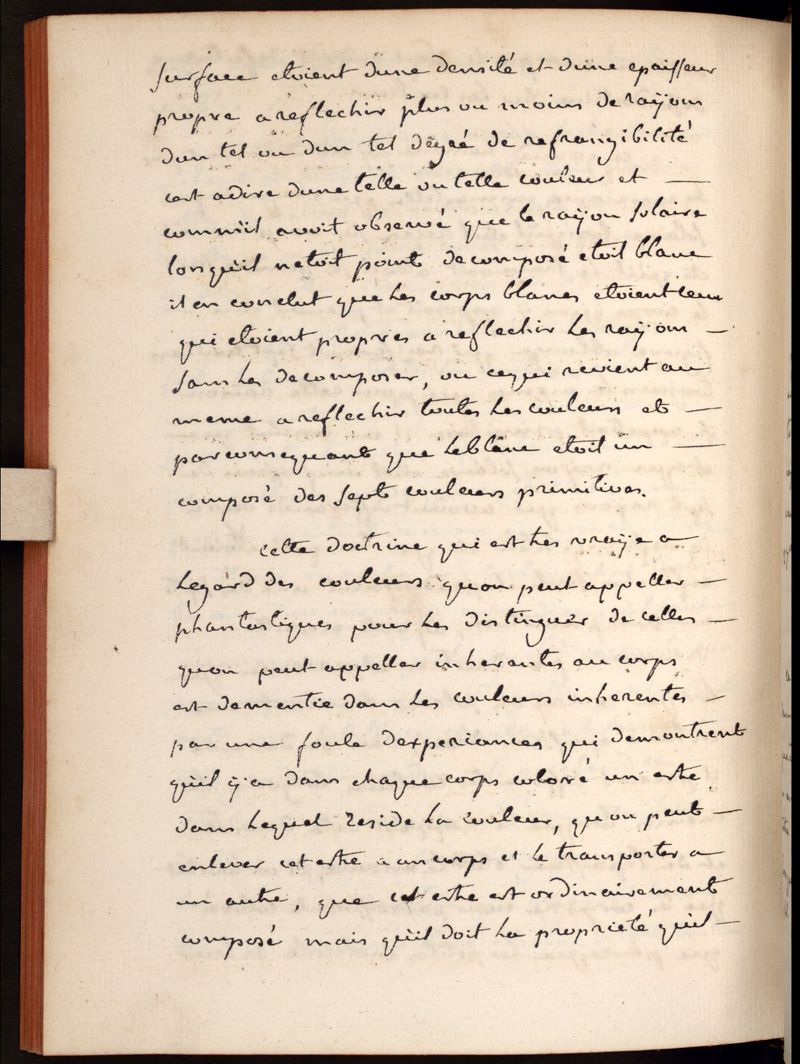 surface etoient dune densité et dune epaisseur
propre a reflechir plus ou moins de raÿons
dun tel ou dun tel dégré de refrangibilité
cest adire dune telle ou telle couleur et —
comm'il avoit observé que le raÿon solaire
lorsqu'il netoit point decomposé etoit blanc
il en conclut que les corps blancs etoient ceux
qui etoient propres a reflechir les raÿons —
sans les decomposer, ou cequi revient au
meme a reflechir toutes les couleurs et —
parconsequant que leblanc etoit un —
composé des sept couleurs primitives.
cette doctrine qui est tres vraÿe a
legard des couleurs quon peut appeller —
phantastiques pour les distinguer de celles —
quon peut appeller inherentes au corps
est dementie dans les couleurs inherentes —
par une foule dexperiances qui demontrent
qu'il ÿ a dans chaque corps coloré un estre
dans lequel reside la couleur, quon peut —
enlever cet estre a un corps et le transporter a
un autre, que cet estre est ordinairement
composé mais qu'il doit la proprieté qu'il —